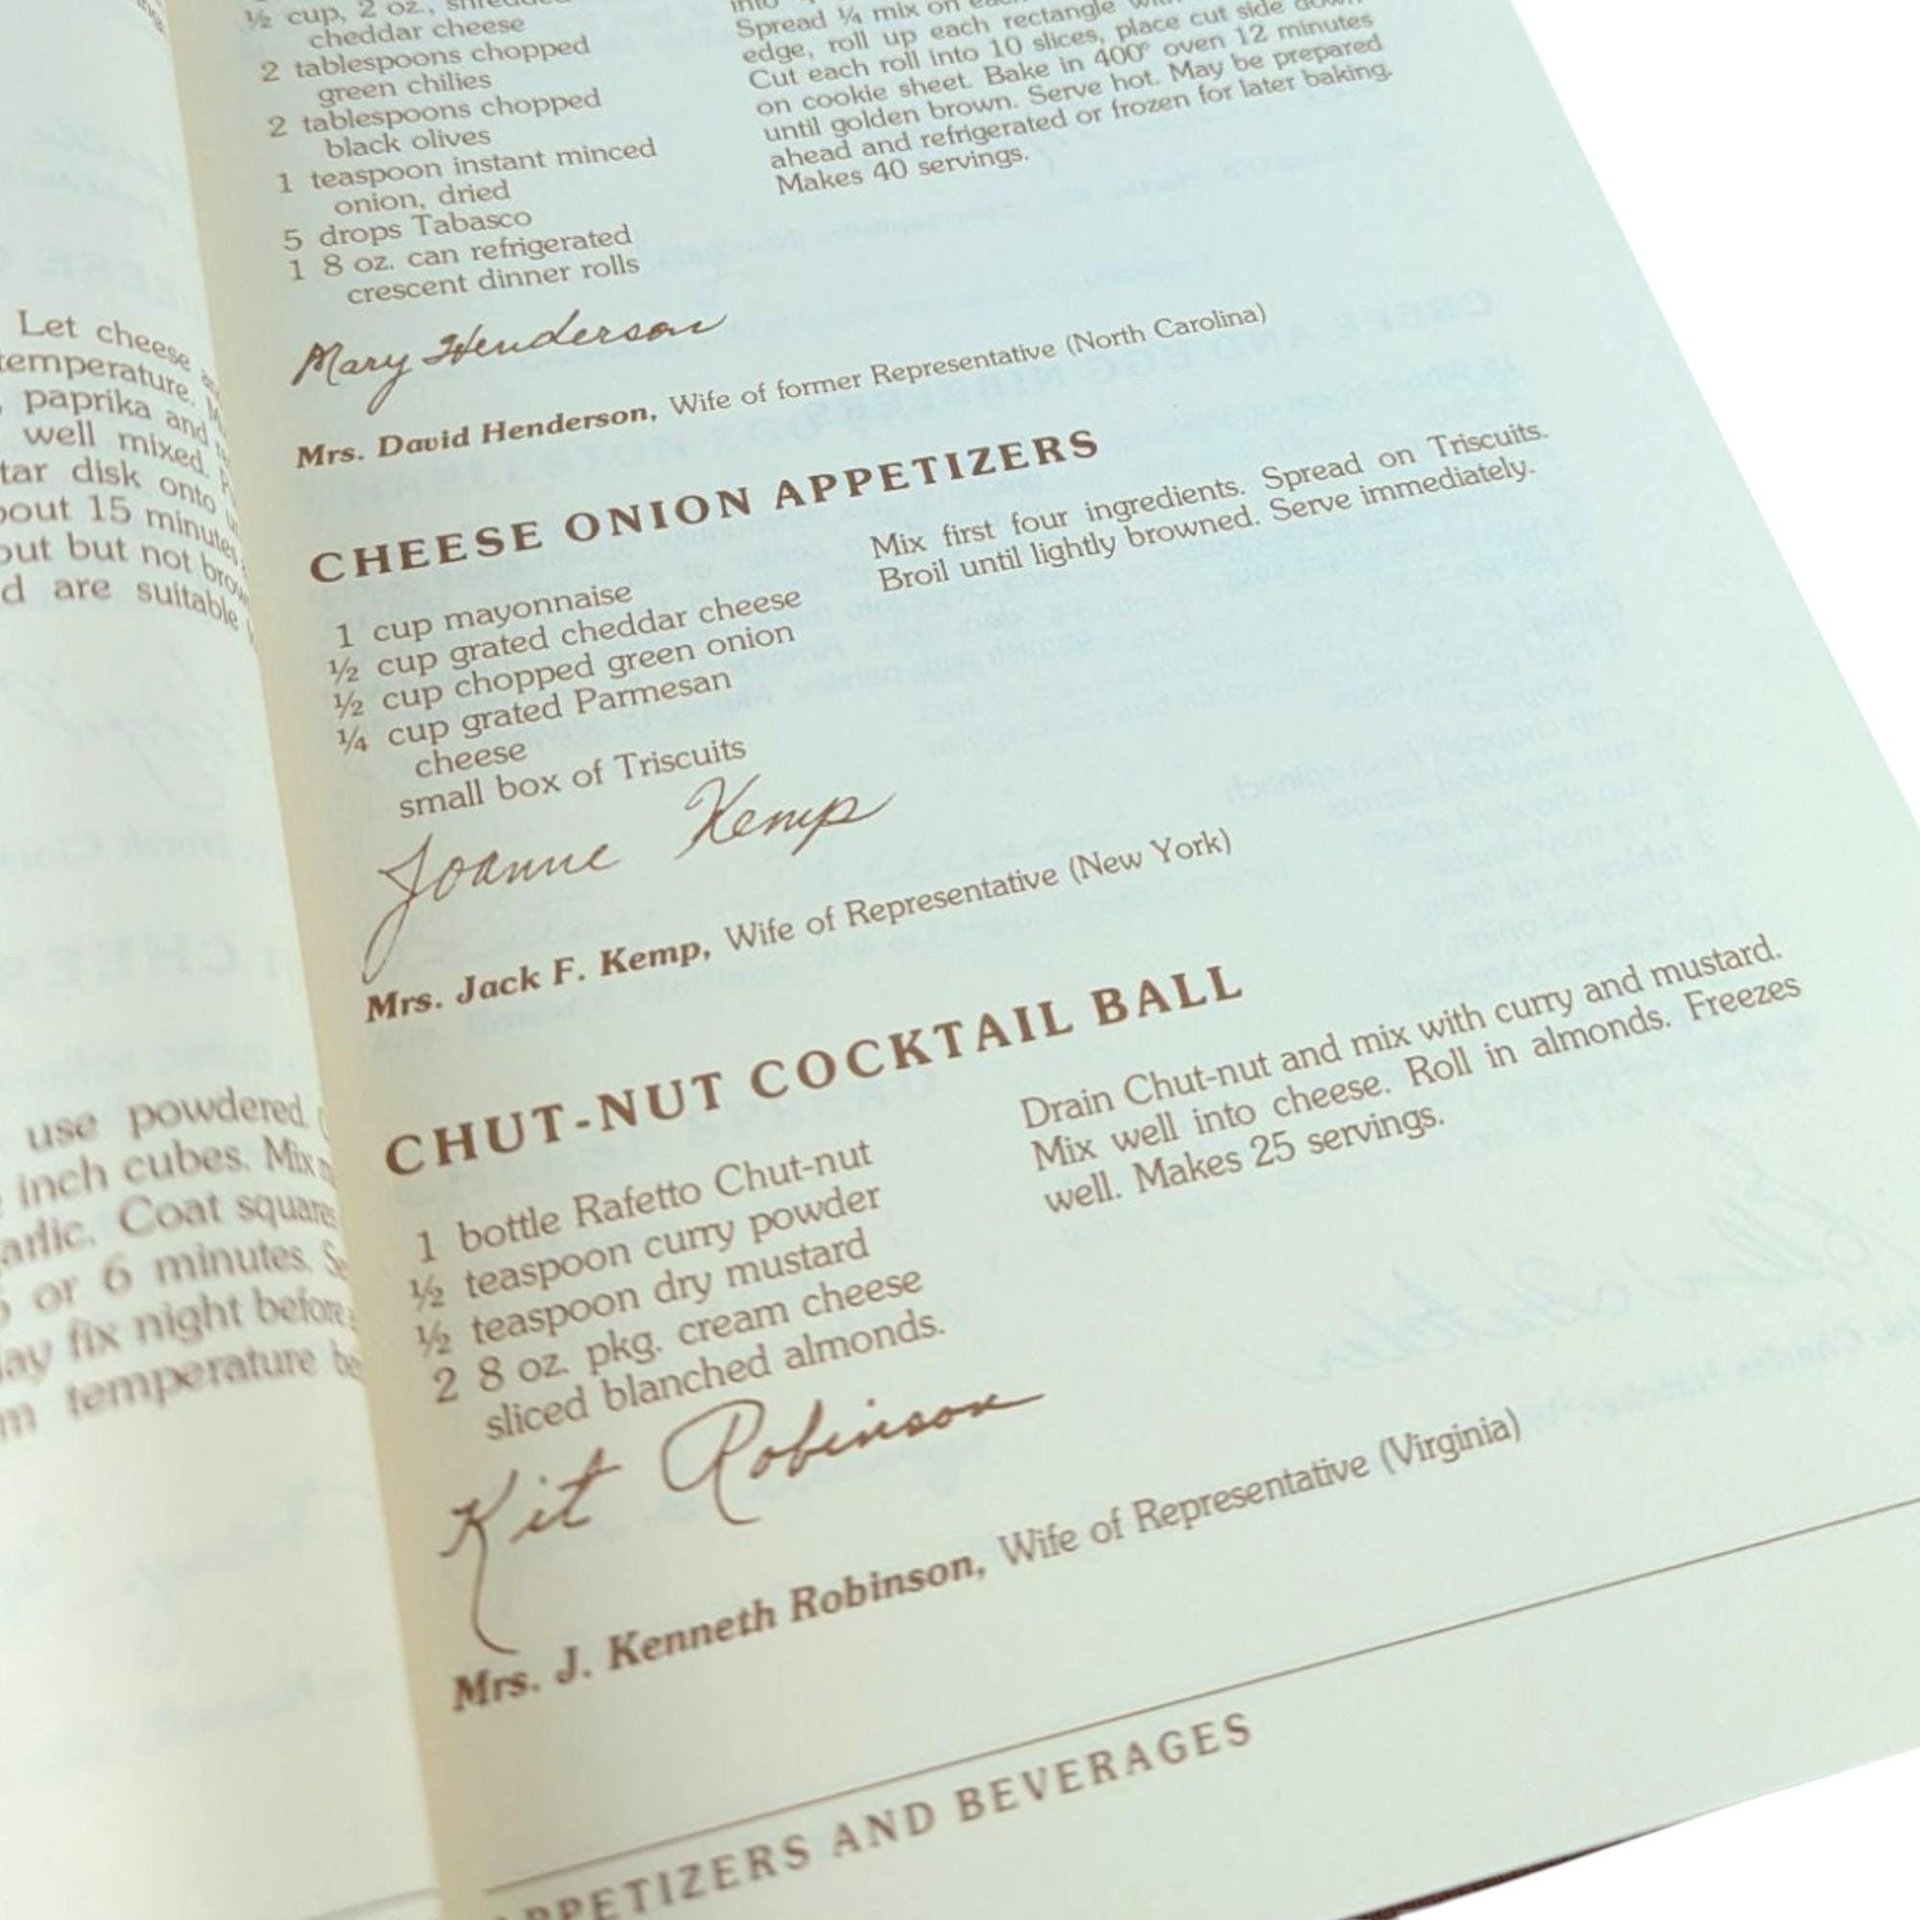 Let cheese
temperature.
paprika and
well mixed.
disk onto
15 minutes
but not
are suitable
use powdered
inch cubes. Mix
Coat squares
or 6 minutes.
fix night before
temperature
½ cup, 2 oz., shredded
cheddar cheese
2 tablespoons chopped
green chilies
2 tablespoons chopped
black olives
1 teaspoon instant minced
onion, dried
5 drops Tabasco
1 8 oz. can refrigerated
crescent dinner rolls
into
Spread ¼ mix on
edge, roll up each rectangle
Cut each roll into 10 slices, place cut side down
on cookie sheet. Bake in 400° oven 12 minutes
until golden brown. Serve hot. May be prepared
ahead and refrigerated or frozen for later baking.
Makes 40 servings.
Mary Henderson
Mrs. David Henderson, Wife of former Representative (North Carolina)
CHEESE ONION APPETIZERS
1 cup mayonnaise
½ cup grated cheddar cheese
½ cup chopped green onion
¼ cup grated Parmesan
cheese
small box of Triscuits
Mix first four ingredients. Spread on Triscuits.
Broil until lightly browned. Serve immediately.
Joanne Kemp
Mrs. Jack F. Kemp, Wife of Representative (New York)
CHUT-NUT COCKTAIL BALL
1 bottle Rafetto Chut-nut
½ teaspoon curry powder
½ teaspoon dry mustard
2 8 oz. pkg. cream cheese
sliced blanched almonds.
Drain Chut-nut and mix with curry and mustard.
Mix well into cheese. Roll in almonds. Freezes
well. Makes 25 servings.
Kit Robinson
Mrs. J. Kenneth Robinson, Wife of Representative (Virginia)
APPETIZERS AND BEVERAGES